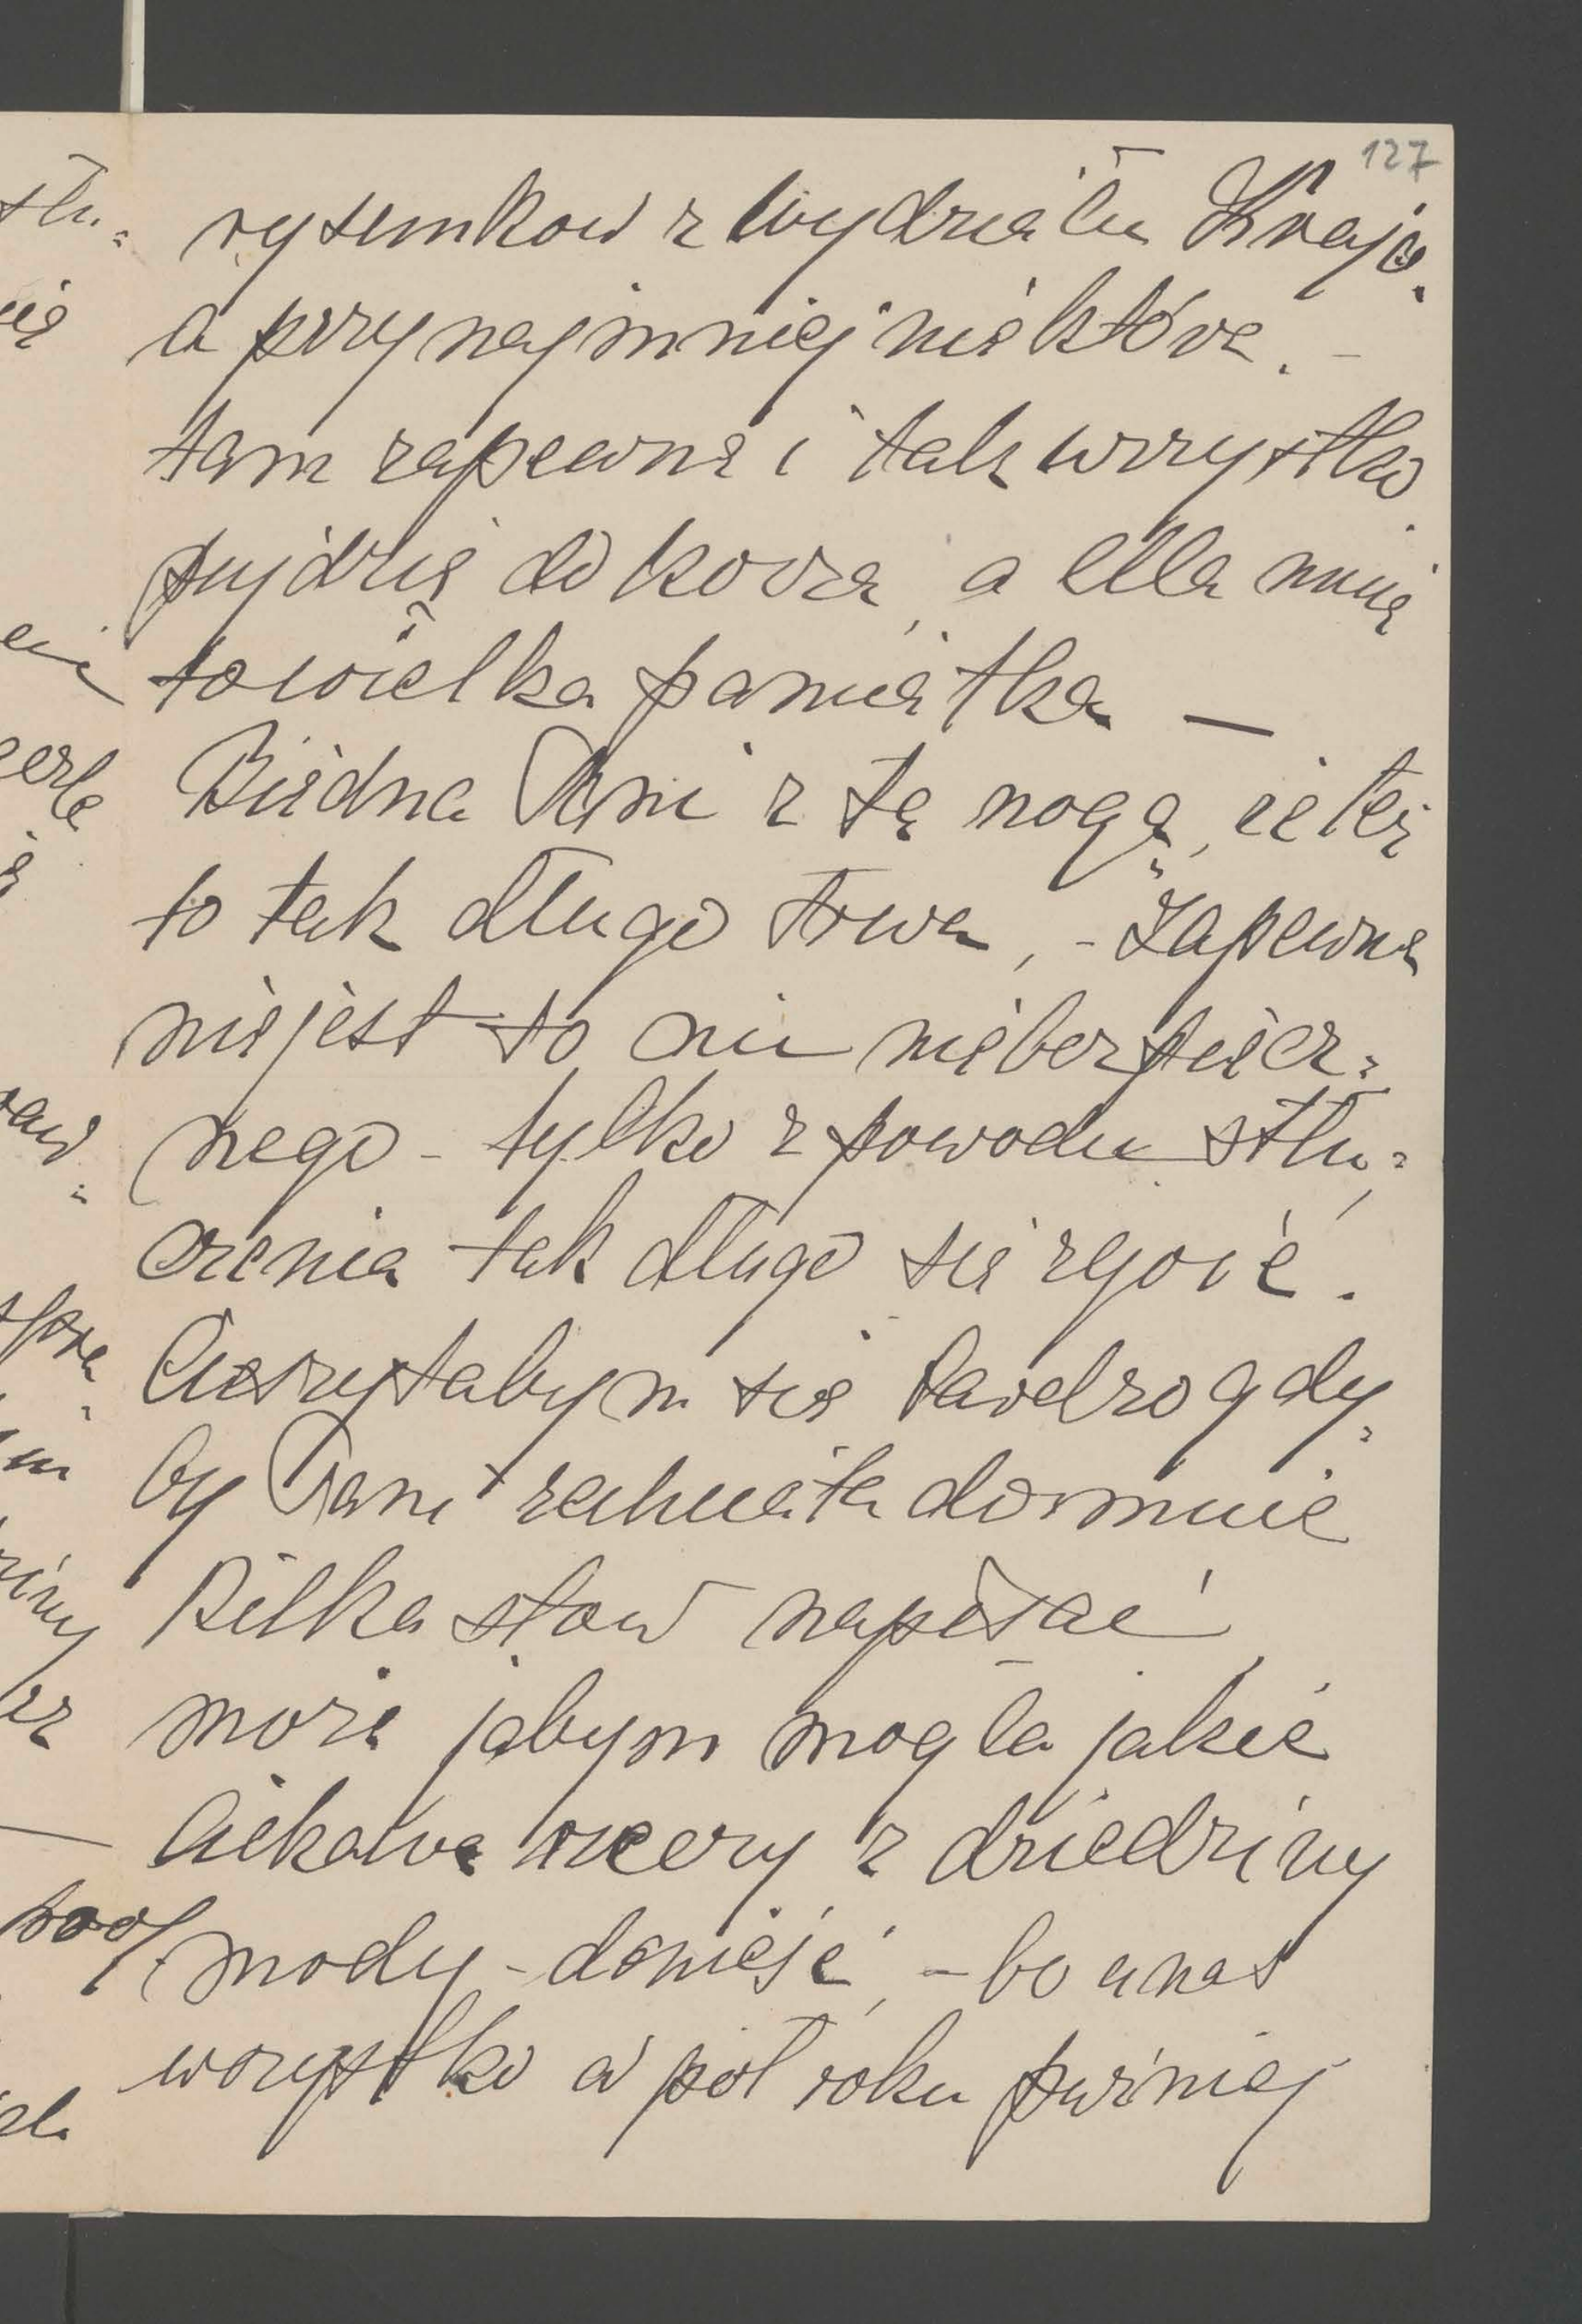 127
rysunkow z Wydziału Krajo.
a przynajmniej niektóre. –
tam zapewne i tak wszystko
pujdzie do kosza, a dla mnie
to wielka pamiątka —
Biedna Pani z tą nogą, że też
to tak długo trwa, – Zapewne
nie jest to nic niebezpiecz=
nego – tylko z powodu stłu=
czenia tak długo się zgoić.
Cieszyłabym się bardzo gdy=
by Pani zechciała do mnie
Kilka słow napisać,
może jabym mogła jakie
Ciekawe rzeczy z dziedziny
mody – donieść, – bo u nas
wszystko o pół roku puźniej